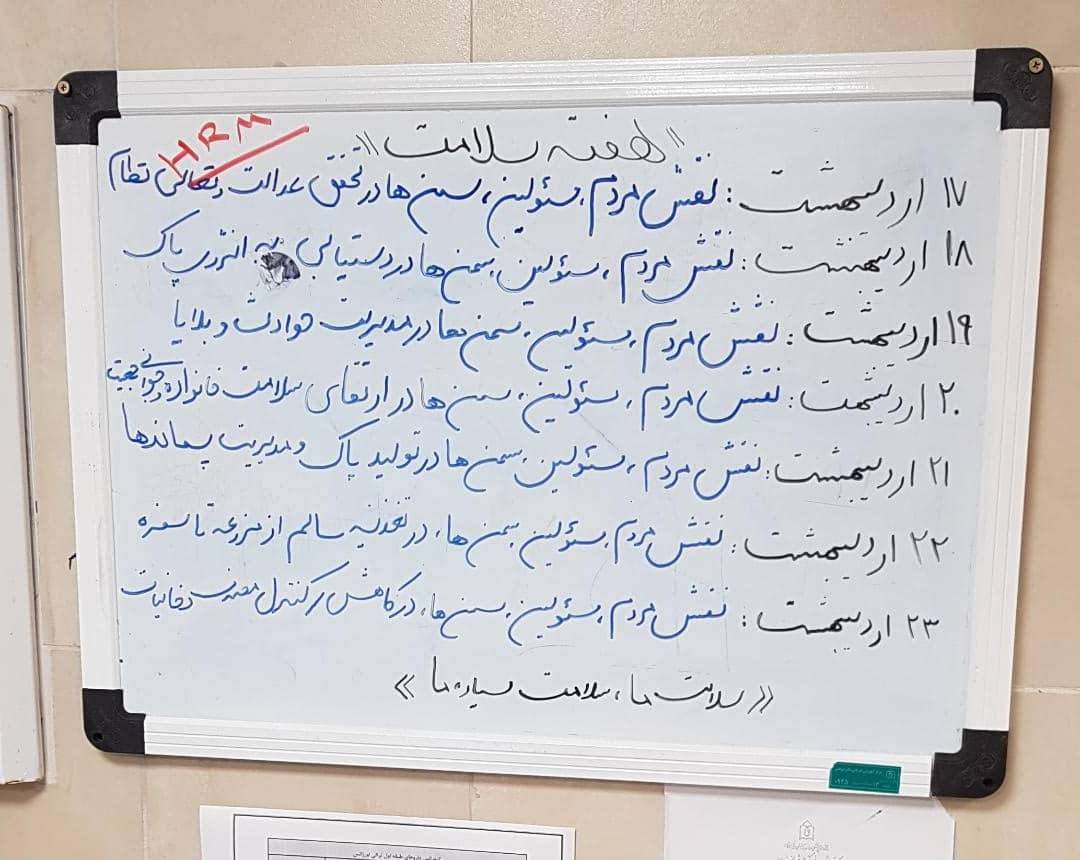 HRM
«هفته سلامت»
۱۷ اردیبهشت: نقش مردم، مسئولین، سمن ها در تحقق عدالت و تعالی نظام
۱۸ اردیبهشت: نقش مردم، مسئولین، سمن ها در دستیابی به انرژی پاک
۱۹ اردیبهشت: نقش مردم، مسئولین، سمن ها در مدیریت حوادث و بلایا
۲۰ اردیبهشت: نقش مردم، مسئولین، سمن ها در ارتقای سلامت خانواده و جوانی جمعیت
۲۱ اردیبهشت: نقش مردم، مسئولین، سمن ها در تولید پاک و مدیریت پسماندها
۲۲ اردیبهشت: نقش مردم، مسئولین، سمن ها، در تغذیه سالم از مزرعه تا سفره
۲۳ اردیبهشت: نقش مردم، مسئولین، سمن ها، در کاهش و کنترل مصرف دخانیات
«سلامت ما، سلامت سیاره ما»